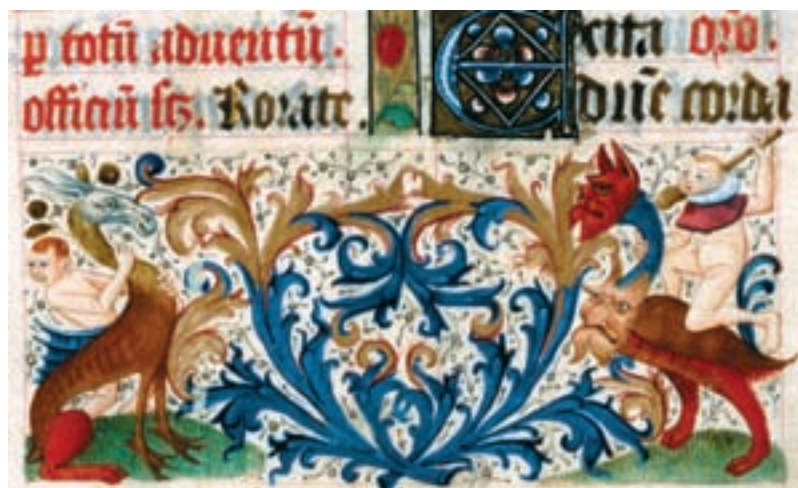 ꝑ totū aduentū.
officiū ſcꝫ. Rorate.
Excita oro̅.
dn̄e corda